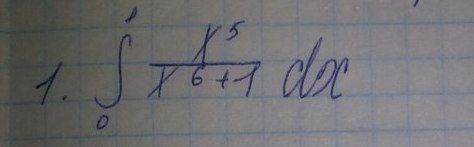 1. ∫₀¹ x⁵/(x⁶+1) dx